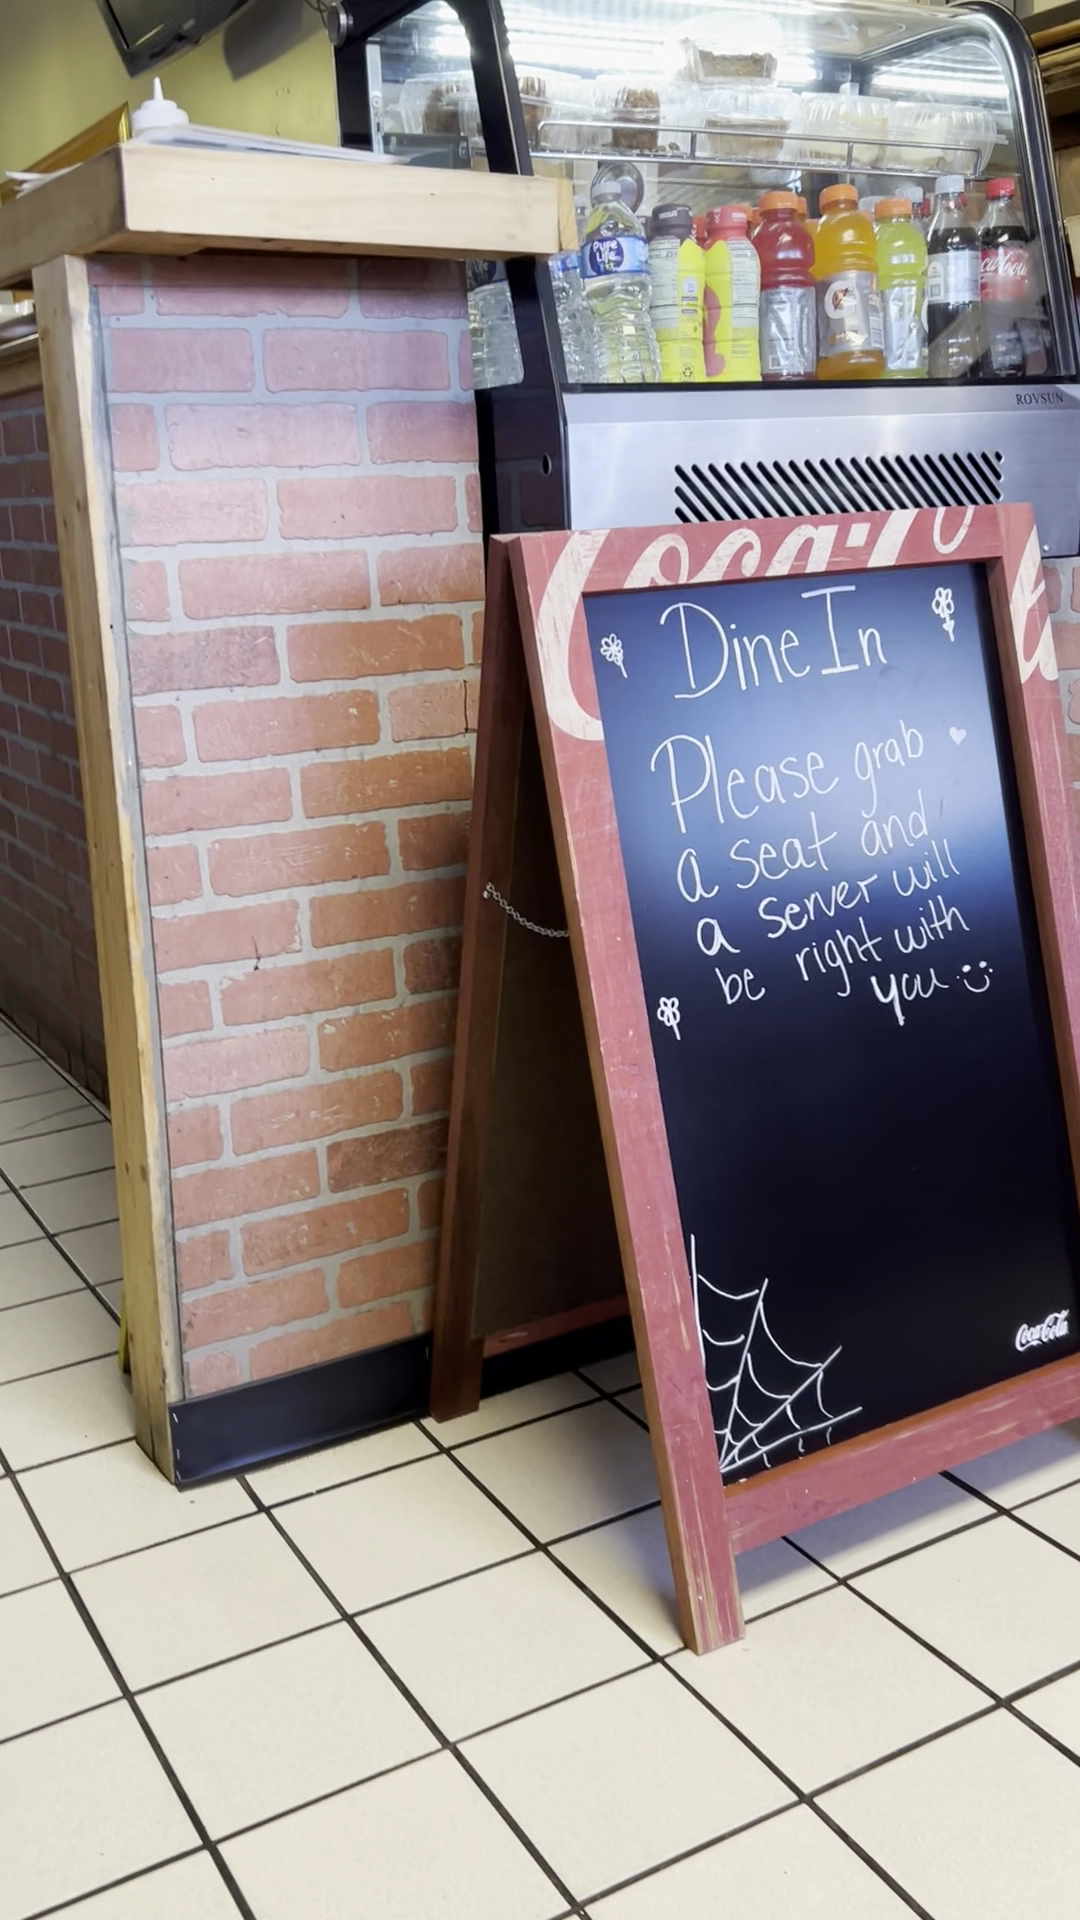 Pure
Life
Coca-Cola
ROVSUN
Coca-Co
Dine In
Please grab
a seat and
a server will
be right with
you
Coca-Cola